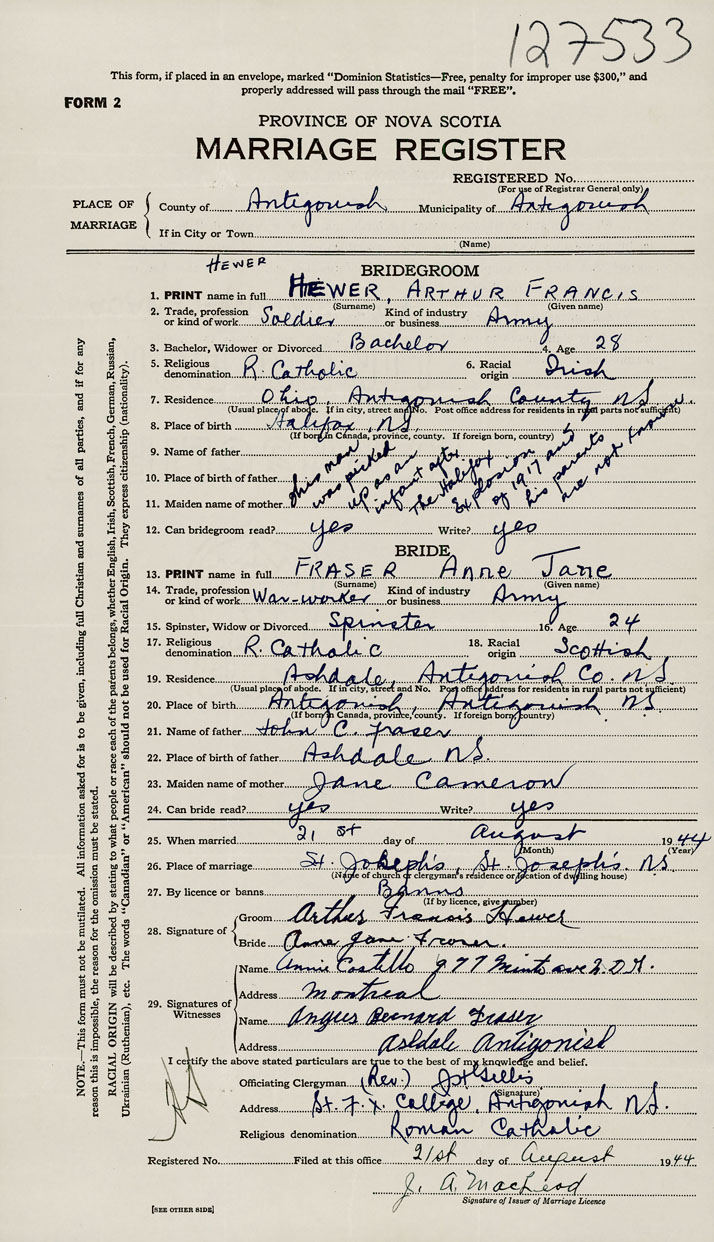 127533
This form, if placed in an envelope, marked "Dominion Statistics—Free, penalty for improper use $300," and
properly addressed will pass through the mail "FREE".
FORM 2
PROVINCE OF NOVA SCOTIA
MARRIAGE REGISTER
REGISTERED No.
(For use of Registrar General only)
PLACE OF MARRIAGE
County of Antigonish Municipality of Antigonish
If in City or Town
(Name)
HEWER
BRIDEGROOM
1. PRINT name in full HEWER, ARTHUR FRANCIS
(Surname) (Given name)
2. Trade, profession or kind of work Soldier Kind of industry or business Army
3. Bachelor, Widower or Divorced Bachelor 4. Age 28
5. Religious denomination R. Catholic 6. Racial origin Irish
7. Residence Ohio, Antigonish County N.S.
(Usual place of abode. If in city, street and No. Post office address for residents in rural parts not sufficient)
8. Place of birth Halifax, N.S.
(If born in Canada, province, county. If foreign born, country)
9. Name of father
10. Place of birth of father
11. Maiden name of mother
this man
was picked
up as an
infant after
the Halifax
Explosion
of 1917 and
his parents
are not known
12. Can bridegroom read? yes Write? yes
BRIDE
13. PRINT name in full FRASER Anne Jane
(Surname) (Given name)
14. Trade, profession or kind of work War-worker Kind of industry or business Army
15. Spinster, Widow or Divorced Spinster 16. Age 24
17. Religious denomination R. Catholic 18. Racial origin Scottish
19. Residence Ashdale, Antigonish Co. N.S.
(Usual place of abode. If in city, street and No. Post office address for residents in rural parts not sufficient)
20. Place of birth Antigonish, Antigonish N.S.
(If born in Canada, province, county. If foreign born, country)
21. Name of father John C. Fraser
22. Place of birth of father Ashdale N.S.
23. Maiden name of mother Jane Cameron
24. Can bride read? yes Write? yes
25. When married 21st day of August 1944
(Month) (Year)
26. Place of marriage St. Joseph's, St. Joseph's. N.S.
(Name of church or clergyman's residence or location of dwelling house)
27. By licence or banns Banns
(If by licence, give number)
28. Signature of
Groom Arthur Francis Hewer
Bride Anne Jane Fraser.
29. Signatures of Witnesses
Name Annie Costello 977
Address Montreal
Name Angus Bernard Fraser
Address Ashdale Antigonish
I certify the above stated particulars are true to the best of my knowledge and belief.
Officiating Clergyman (Rev.) Gillis
(Signature)
Address St. F. X. College, Antigonish N.S.
Religious denomination Roman Catholic
Registered No. Filed at this office 21st day of August 1944
J. A. MacLeod
Signature of Issuer of Marriage Licence
[SEE OTHER SIDE]
NOTE.—This form must not be mutilated. All information asked for is to be given, including full Christian and surnames of all parties, and if for any
reason this is impossible, the reason for the omission must be stated.
RACIAL ORIGIN will be described by stating to what people or race each of the parents belongs, whether English, Irish, Scottish, French, German, Russian,
Ukrainian (Ruthenian), etc. The words "Canadian" or "American" should not be used for Racial Origin. They express citizenship (nationality).